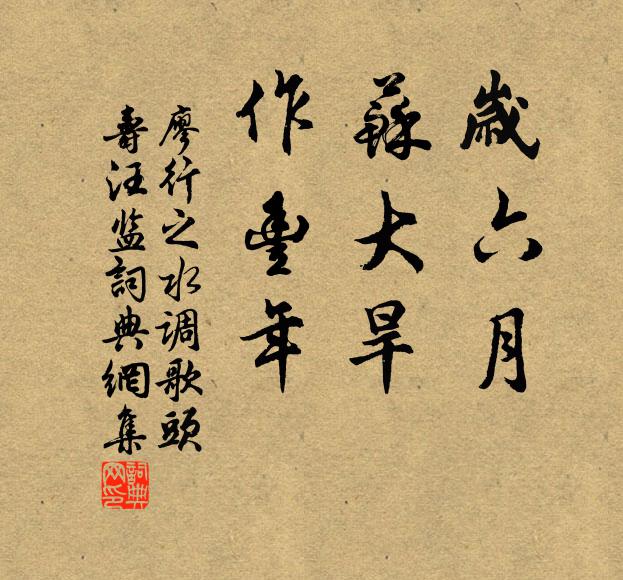 歲六月
蘇大旱
作豐年
廖行之水调歌頭
壽汪监詞典網集
詞典网印